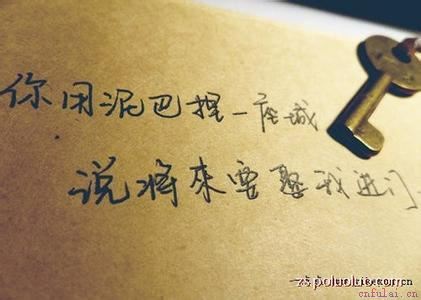 你用泥巴捏一座城
说将来要娶我进门
cnfulai.cn